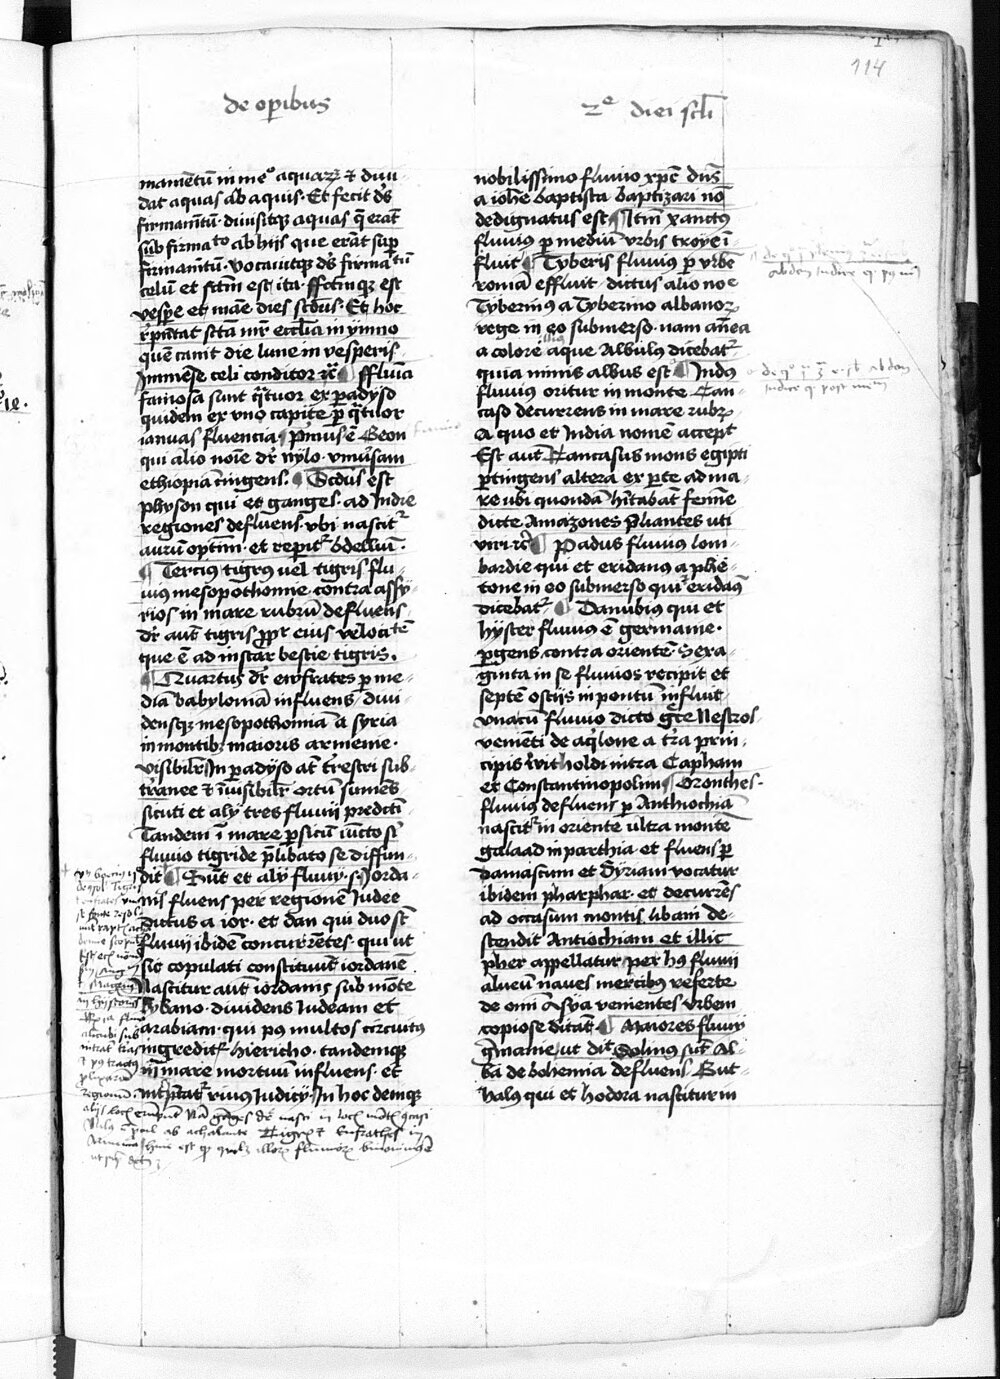 114
de operibus 2e diei secli
mamentū in meº aquarꝝ & divi-
dat aquas ab aquis. Et fecit ds̄
firmamētū divisitqꝫ aquas q̄ erāt
sub firmaᵗᵒ ab hijs que erāt sup̄
firmamētū. vocavitqꝫ ds̄ firmaᵗū
celū et fc̄tm est ita. ffc̄tmqꝫ est
vesp̄e et mane dies sc̄dus. Et hoc
rep̄n̄tat sc̄tā mr̄ eccl̄ia in ẏmno
quē canit die lune in vesperis
Immēse celi conditor ⁊c̄ ¶ ffluvia
famosa sunt q̄tuor ex padẏso
quidem ex vno capite p̄ q̄tuor
ianuas fluencia ¶ Pⁱmus ē Geon
qui alio noīe dr̄ nẏlo. vniūsam
ethiopiā cingens. ¶ Sc̄dus est
physon qui et ganges. ad Indie
regiones defluens. vbi nascitᷣ
aurū optīm. et repitᷣ bdellium.
¶ Tercius tigrꝰ vel tigris flu-
vius mesopothomie. contra assẏ-
rios in mare rubrū defluens.
dr̄ autē tigris ꝓpt̄ eius velociᵗᵉ̄
que ē ad instar bestie tigris.
¶ Quartus dr̄ eufrates p̄ me-
diā babyloniā influens. divi-
densqꝫ mesopothomia a sẏria
in montibꝫ maioris armenie.
visibilr̄ In padẏso at̄ t̄restri sub-
t̄ranee & īvisibilr̄ ortū sumēs
sicuti et alij tres fluvij predc̄ti
Tandem ī mare p̄sicū iūcto sⁱ
fluvio tigride p̄libato se diffun-
dit ¶ Sūt et alij fluvij .s. Iorda-
nis fluens per regionē Iudee
dictus a ior. et dan qui duo st̄
fluvij ibidē concurrētes. qui ut
sic copulati constituūt iordanē
Nascitur autē iordanis sub mōte
Lybano. dividens Iudeam et
arabiam. qui pꝰ multos circuitus
ingreditᷣ hiericho. tandemqꝫ
in mare mortuū influens. et
int̄p̄tatᷣ rivus Iudicij. In hoc deniqꝫ
nobilissimo fluvio xp̄c dn̄s
a iohē baptista baptizari nō
dedignatus est ¶ Itm̄ xanctus
fluvius p̄ mediū vrbis troye ī-
fluit ¶ Tyberis fluvius p̄ vrbē
romā effluit. dictus alio noᵉ
Tyberinus a Tyberino albanoꝝ
rege in eo submerso. nam antea
a colore aque Albulus dicebatᷣ
quia nimis albus est ¶ Indꝰ
fluvius oritur in monte Can-
caso decurrens in mare rubrꝝ
A quo et India nomē accepit
Est autē Kancasus mons egipti
p̄tingens altera ex p̄te ad ma-
re ubi quondā hītabat femīe
dicte Amazones p̄liantes uti
viri ⁊c̄ ¶ Padus fluvius lom-
bardie qui et eridanus a phē-
tone in eo submerso quiᷣ eridanꝰ
dicebatᷣ ¶ Danubius qui et
hẏster fluvius ē germanie.
p̄gens contra oriente. Sexa-
ginta in se fluvios recipit et
septē ostijs in pontū influit.
vnacū fluvio dicto gc̄e Nestrol.
venienti de aq̄lone a t̄ra prin-
cipis vitholdi intra Capham
et Constantinopolim ¶ Oronthes.
fluvius defluens p̄ Anthiochiā
nascitᷣ in oriente ultra montē
galaad in parthia. et fluens p̄
damascum et Syriam vocatur
ibidem pharphar. et decurrēs
ad occasum montis libani de-
scendit Antiochiam et illic
pher appellatur. per hꝰ fluvij
alveū naves mercibus referte
de omi Asya venientes vrbem
copiose ditāt ¶ Maiores fluvij
gmanie, ut dit Solinus sūt Al-
ba de bohemia defluens. Gut-
halus qui et hodora nascitur in